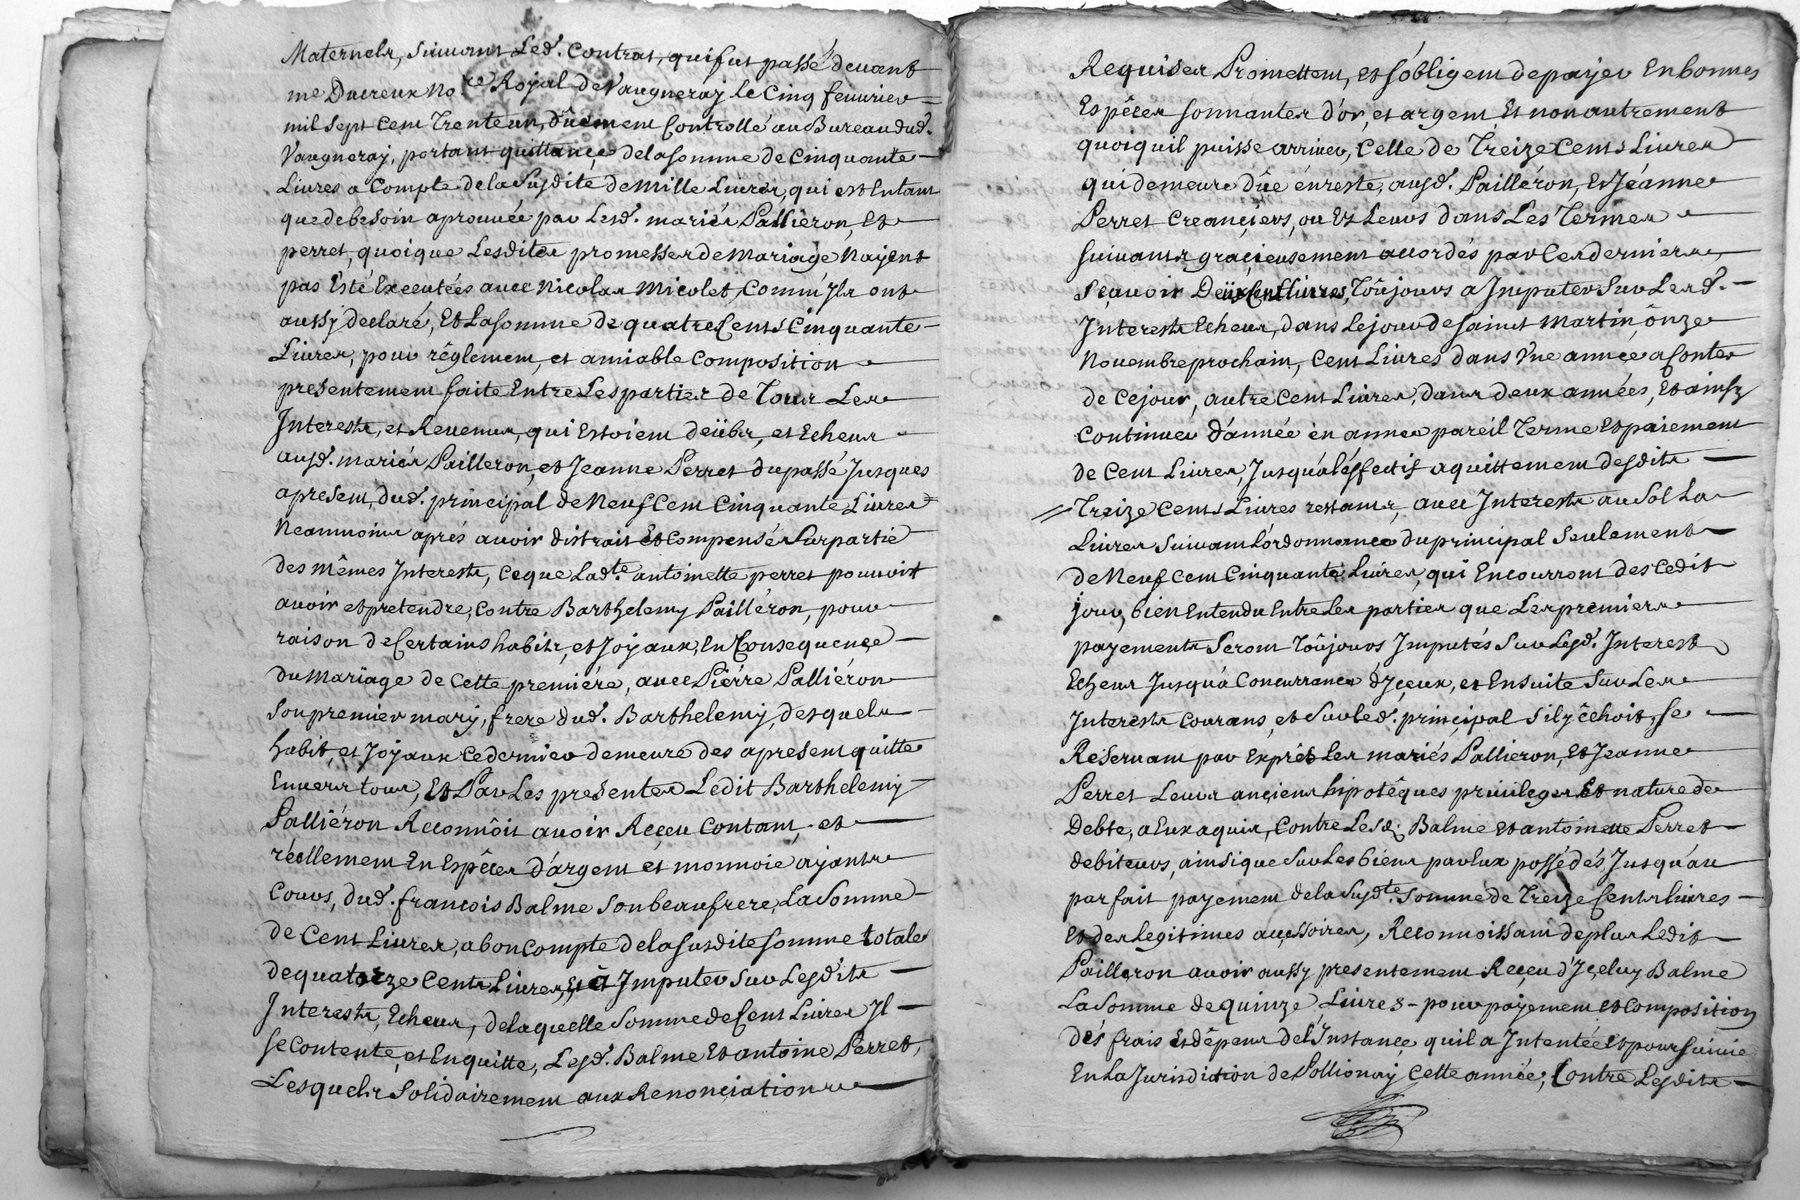 Maternels, suivant Led. Contrat, qui fut passé devant
me Ducreux No.re Royal de Vaugneray le Cinq feuvrier
mil sept Cent Trente un, dûement Controllé au Bureau dud.
Vaugneray, portant quittance de la somme de Cinquante
Livres a Compte de la Susdite de Mille Livres, qui est Entant
que de besoin aprouvée par Lesd. mariés Palliéron, Et
perret, quoique Lesdites promesses de Mariage Nayent
pas Esté Executées avec Nicolas Micolet, Comm'Ils ont
aussy declaré, Et La somme de quatre Cents Cinquante
Livres, pour réglement, et amiable Composition
presentement faite Entre Les parties de Tous Les
Interests, et Revenus, qui Estoient deübs, et Echeus
ausd. mariés Pailleron, et Jeanne Perret du passé Jusques
apresent, dud. principal de Neuf Cent Cinquante Livres
Neanmoins aprés avoir distrait Et Compensés Sur partie
des mêmes Interests, Ceque Lad.te antoinette perret pouvoit
avoir et pretendre, Contre Barthelemy Pailléron, pour
raison de Certains habits, et Joyaux, En Consequence
du Mariage de Cette premiére, avec Piérre Palliéron
Son premier mary, frere dud. Barthelemy, desquels
habits, et Joyaux Ce dernier demeure des apresent quitte
Envers tous, Et Par Les presentes Ledit Barthelemy
Palliéron Reconnôit avoir Reçeu Contant, et
réellement En Espêces d'argent et monnoie ayants
Cours, dud. françois Balme Son beaufrere, La Somme
de Cent Livres, a bon compte de la susdite somme totale
de quatorze Cents Livres, Et â Imputer Sur Lesdits
Interests, Echeus, de laquelle Somme de Cent Livres Il
se Contente, et En quitte, Lesd. Balme Et antoine Perret,
Lesquels Solidairement aux Renonciations
Requises Promettent, et s'obligent de payer En bonnes
Espêces sonnantes d'or, et argent, Et non autrement
quoiquil puisse arriver, Celle de Treize Cents Livres
qui demeure dûe én reste, ausd. Pailléron, Et Jéanne
Perret Creançiers, ou Es Leurs dans Les Termes
suivants graçieusement accordés par Ces derniers,
Sçavoir Deux Cent Livres, Toûjours a Imputer Sur Lesd.
Interests Echeus, dans Le jour de Saint Martin, ônze
Novembre prochain, Cent Livres dans Vne année a Conter
de Cejour, autre Cent Livres, dans deux années, Et ainsy
Continuer d'année én année pareil Terme Et paiement
de Cent Livres, Jusqu'à l'éffectif aquittement desdits
Treize Cents Livres restants, avec Interests au Sol La
Livres Suivant L'órdonnance du principal Seulement
de Neuf Cent Cinquante Livres, qui Encourront des Cedit
jour, bien Entendu Entre Les parties que Les premiers
payements Seront Toûjours Imputés Sur Lesd. Interest
Echeus Jusqu'á Concurrance d'Içeux, et Ensuite Sur Les
Interests Courans, et Sur Led. principal Sil y êchoit, se
Réservant par Exprês Les mariés Pallieron, Et Jeanne
Perret Leurs ançiens hipotêques privileges Et nature de
Debte, a Eux aquis, Contre Lesd. Balme Et antoinette Perret
debiteurs, ainsique Sur Les biens par Eux possédés Jusqu'au
parfait payement de la Susd.te Somme de Treize Cents Livres
Et des Legitimes acçessoires, Reconnoissant de plus Ledit
Pailleron avoir aussy presentement Reçeu d'Içeluy Balme
La Somme de quinze Livres - pour payement et Composition
dés frais Et dêpens de l'Instance quil a Intentée Et poursuivie
En La Jurisdiction de Pollionay Cette année, Contre Lesdits